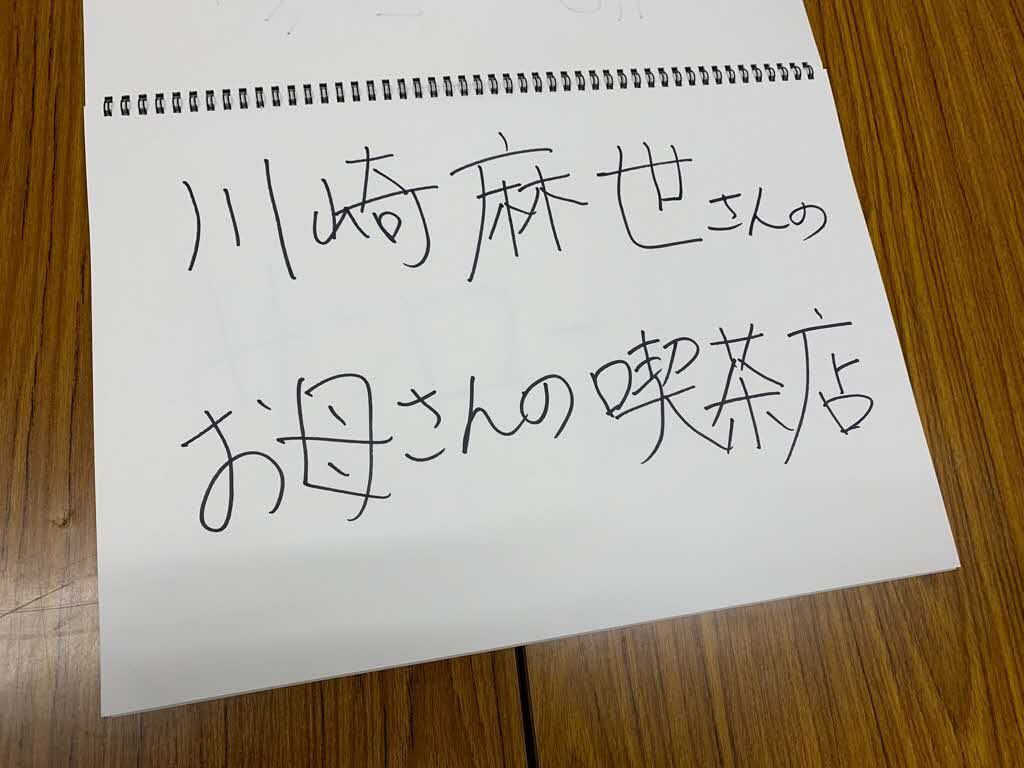 川崎麻世さんの
お母さんの喫茶店